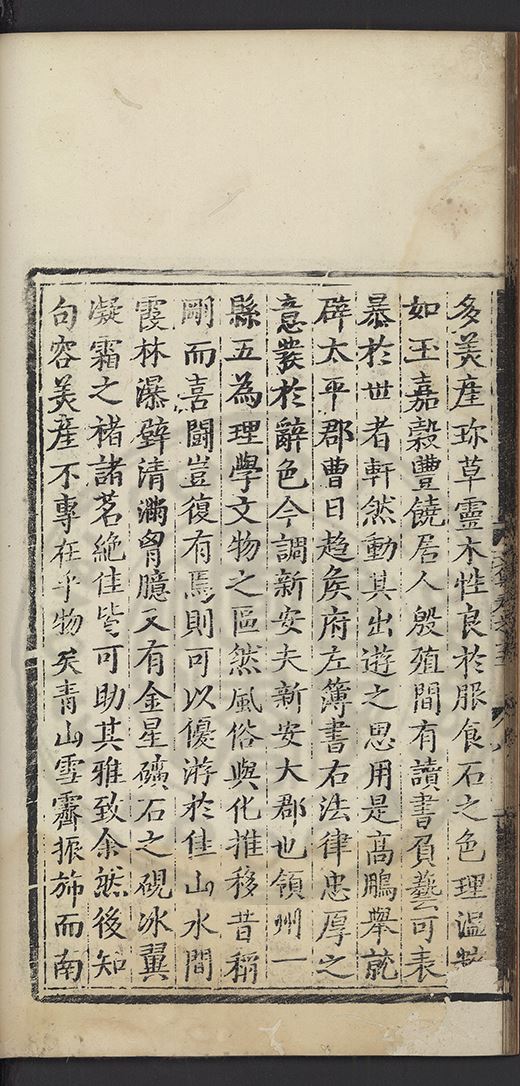 多美産珎草靈木性良於服食石之色理温
如玉嘉榖豐饒居人殷殖間有讀書負藝可表
暴於世者軒然動其出遊之思用是髙鵬舉就
辟太平郡曹日趍矦府左簿書右法律忠厚之
意藂於辭色今調新安夫新安大郡也領州一
縣五為理學文物之區然風俗與化推移昔稱
剛而喜鬪豈復有焉則可以優游於佳山水間
霞林瀑壁清满胷臆又有金星礦石之硯冰翼
凝霜之褚諸茗絶佳皆可助其雅致余然後知
句容美産不專在乎物矣青山雪霽振斾而南